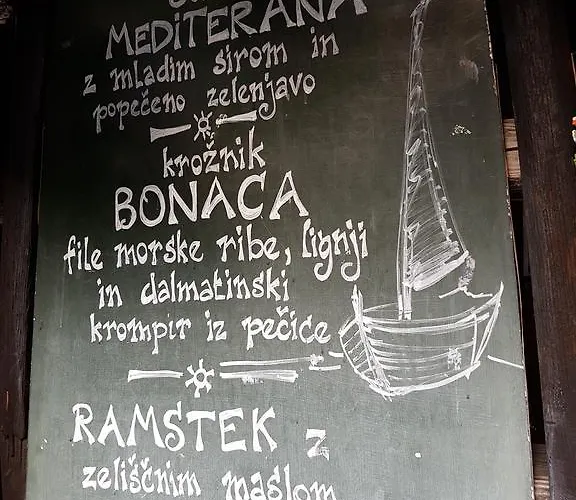 MEDITERANA
z mladim sirom in
popečeno zelenjavo
krožnik
BONACA
file morske ribe, lignji
in dalmatinski
krompir iz pečice
RAMSTEK z
zeliščnim maslom